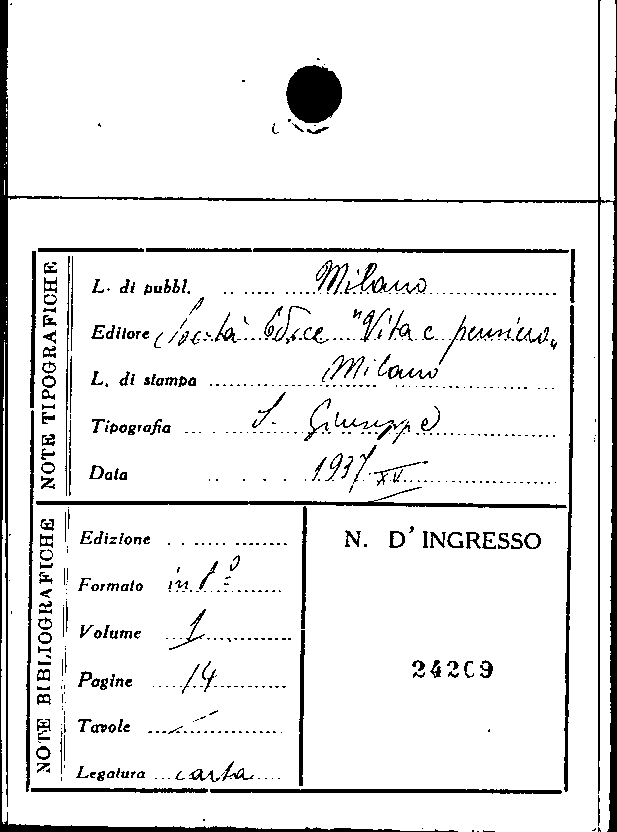 NOTE TIPOGRAFICHE
L. di pubbl. Milano
Editore Società Ed.ce "Vita e pensiero"
L. di stampa Milano
Tipografia S. Giuseppe
Data 1937 XV
NOTE BIBLIOGRAFICHE
Edizione
Formato in 8º
Volume 1
Pagine 14
Tavole /
Legatura carta
N. D'INGRESSO
24209